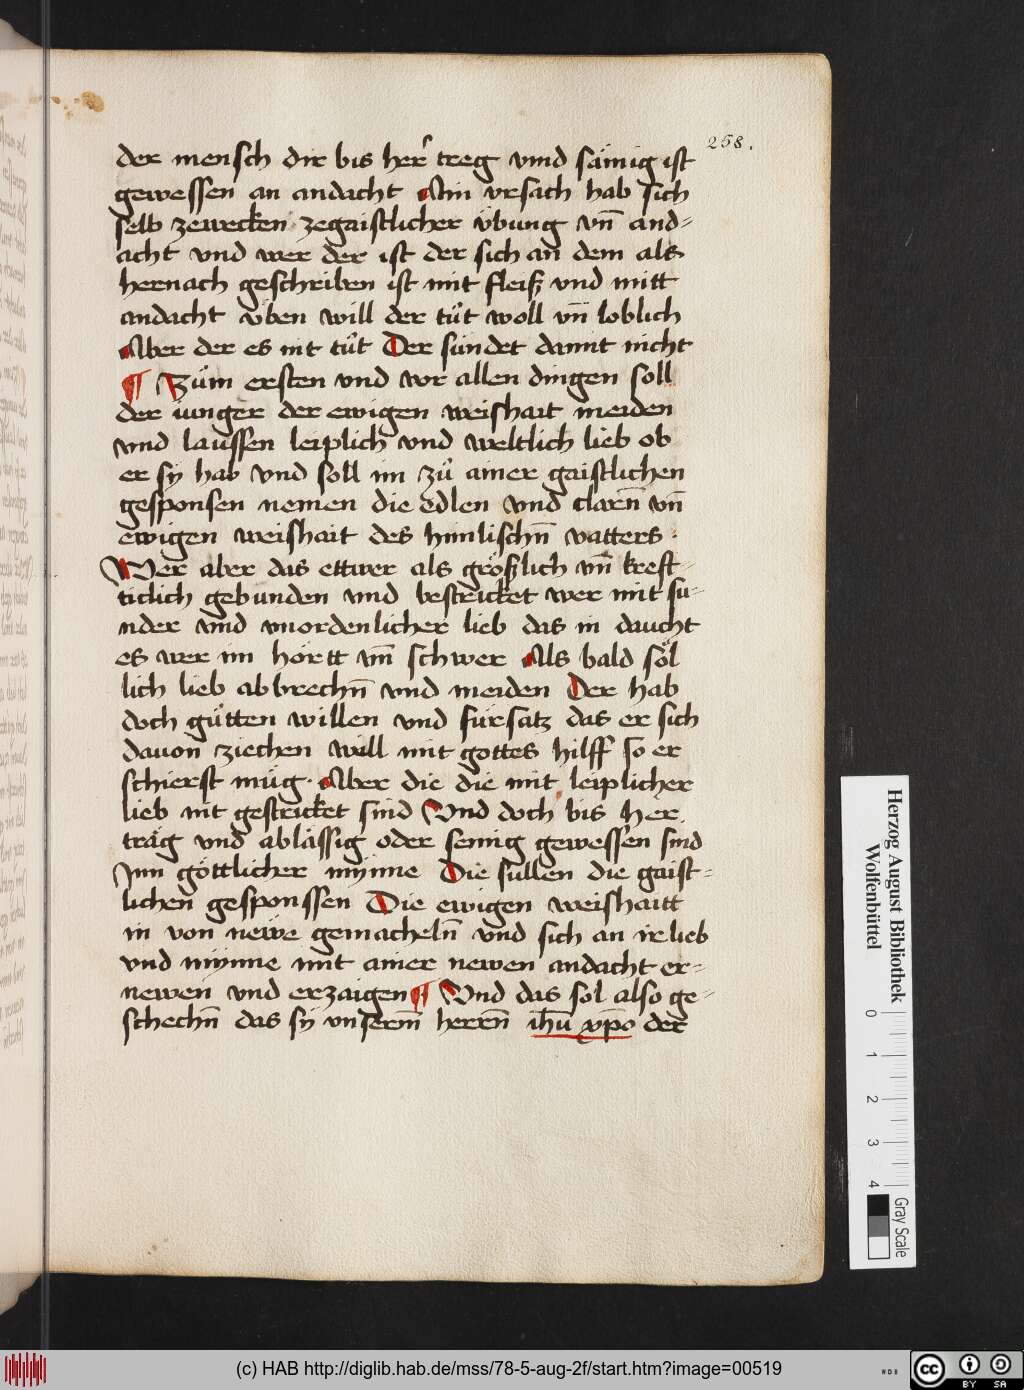 258.
der mensch dir bis her treg vnnd sämig ist
gewessen an andacht Ain vrsach hab sich
selb zewecken zegaistlicher übung vn̄ and-
acht vnd wer der ist der sich an dem als
hernach geschriben ist mit fleiß vnd mitt
andacht vben will der tůt woll vn̄ loblich
Aber der es nit tůt Der sündet damit nicht
¶ Züm ersten vnd vor allen dingen soll
der iunger der ewigen weishait meiden
vnd laussen leiplich vnd weltlich lieb ob
er sy hab vnd soll im zů ainer gaistlichen
gesponsen nemen die edlen vnd clarēn vn̄
ewigen weishait des himlischn̄ vatters
Wer aber das ettwer als größlich vn̄ kreft-
ticlich gebunden vnd bestricket wer mit su-
nder vnd vnordenlicher lieb das in daucht
es wer im hörtt vn̄ schwer Als bald söl
lich lieb abbrechn̄ vnd meiden Der hab
doch gütten willen vnd fürsatz das er sich
dauon ziechen will mit gottes hilff so er
schierst müg Aber die die mit leiplicher
lieb nit gestricket sind Vnd doch bis her
träg vnd ablässig oder semig gewessen sind
Inn göttlicher mynne Die sullen die gaist-
lichen gesponssen Die ewigen weishaitt
in von newe gemacheln̄ vnd sich an ir lieb
vnd mynne mit ainer newen andacht er-
newen vnd erzaigen ¶ Vnd das sol also ge-
schechn̄ das sy vnserm̄ herrn̄ ih̄u xp̄o der
Herzog August Bibliothek
Wolfenbüttel
0 1 2 3 4
Gray Scale
(c) HAB http://diglib.hab.de/mss/78-5-aug-2f/start.htm?image=00519
WDB
cc BY SA